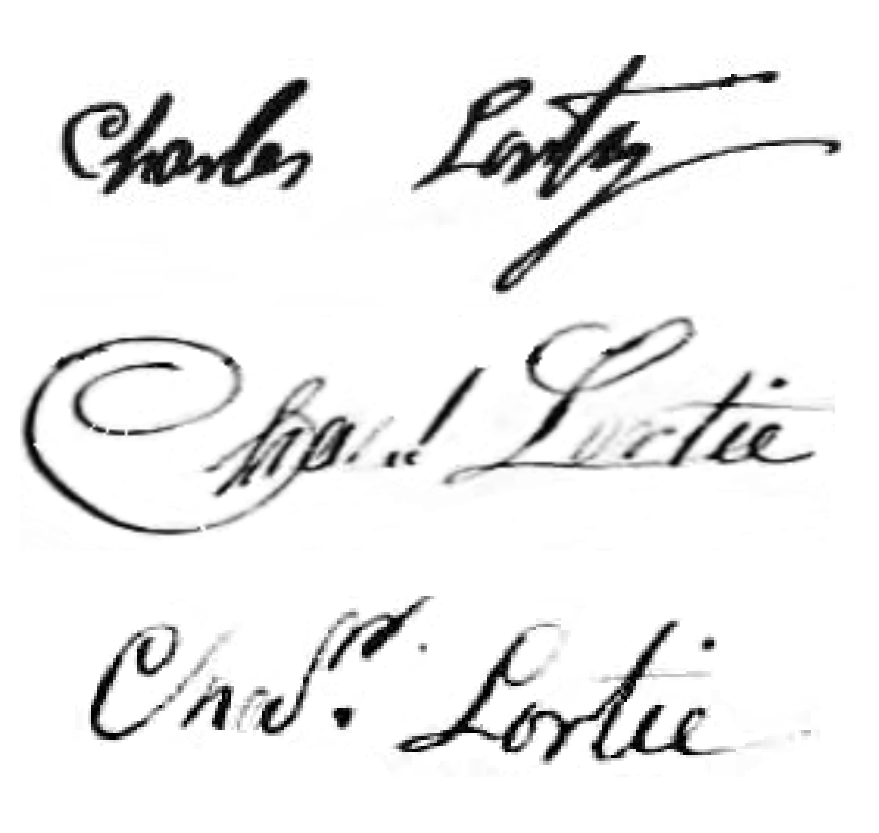 Charles Lorty
Cha..! Lortie
Chas. Lortie